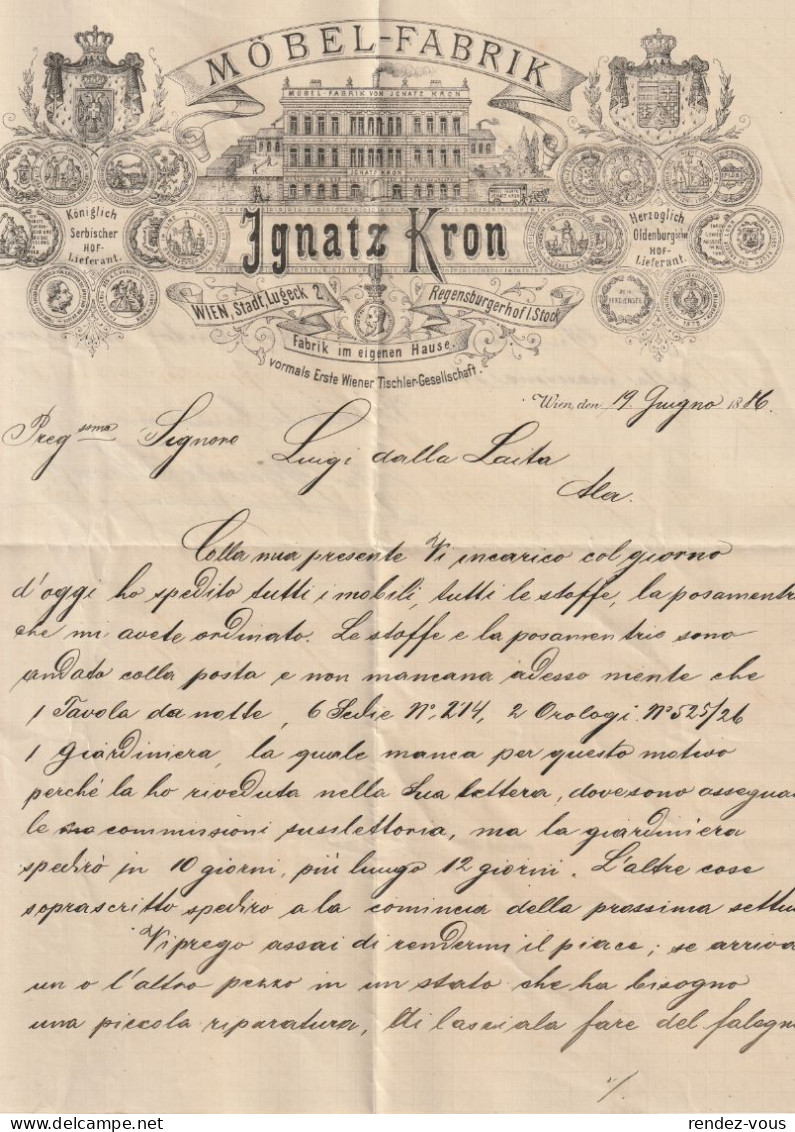 MÖBEL-FABRIK
MÖBEL-FABRIK VON IGNATZ KRON
IGNATZ KRON
Königlich
Serbischer
HOF-
Lieferant.
Ignatz Kron
Herzoglich
Oldenburgischer
HOF-
Lieferant.
WIEN, Stadt Lugeck 2
Regensburgerhof I. Stock
Fabrik im eigenen Hause.
vormals Erste Wiener Tischler-Gesellschaft.
Wien, den 19 Giugno 1886.
Pregsma Signore Luigi dalla Laita
Ala.
Colla mia presente Vi incarico col giorno
d'oggi ho spedito tutti i mobili, tutti le stoffe, la posamentri
che mi avete ordinato. Le stoffe e la posamentrie sono
andato colla posta e non mancana adesso niente che
1 Tavola da notte, 6 Sedie No. 214, 2 Orologi No 525/26
1 giardiniera, la quale manca per questo motivo
perché la ho riveduta nella Sua lettera, dovesono assegua
le commissioni susslettoria, ma la giardiniera
spedirò in 10 giorni, più lungo 12 giorni. L'altre cose
soprascritto spediro a la comincia della prossima settu
Vi prego assai di rendermi il piace; se arriva
un o l'altro pezzo in un stato che ha bisogno
una piccola riparatura, di lasciala fare del falegn
./.
rendez-vous